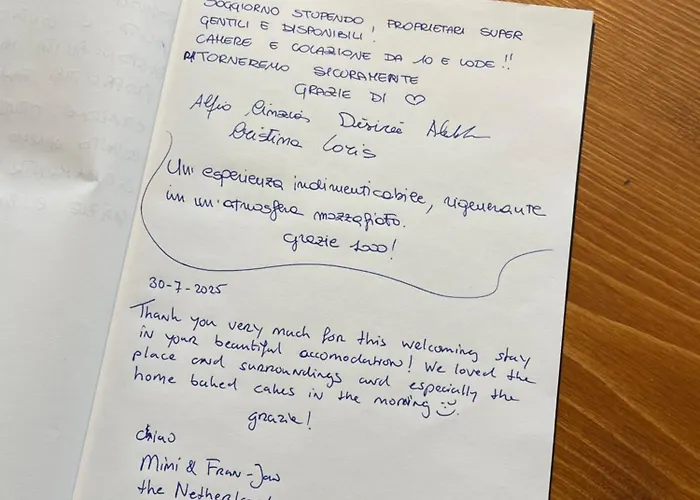 SOGGIORNO STUPENDO! PROPRIETARI SUPER
GENTILI E DISPONIBILI!
CAMERE E COLAZIONE DA 10 E LODE!!
RITORNEREMO SICURAMENTE
GRAZIE DI ♡
Alfio Cinzia Désirée
Cristina Loris
Un'esperienza indimenticabile, rigenerante
in un'atmosfera mozzafiato.
Grazie 1000!
30-7-2025
Thank you very much for this welcoming stay
in your beautiful accomodation! We loved the
place and surroundings and especially the
home baked cakes in the morning :)
grazie!
chiao
Mimi & Fran-Jan
the Netherland